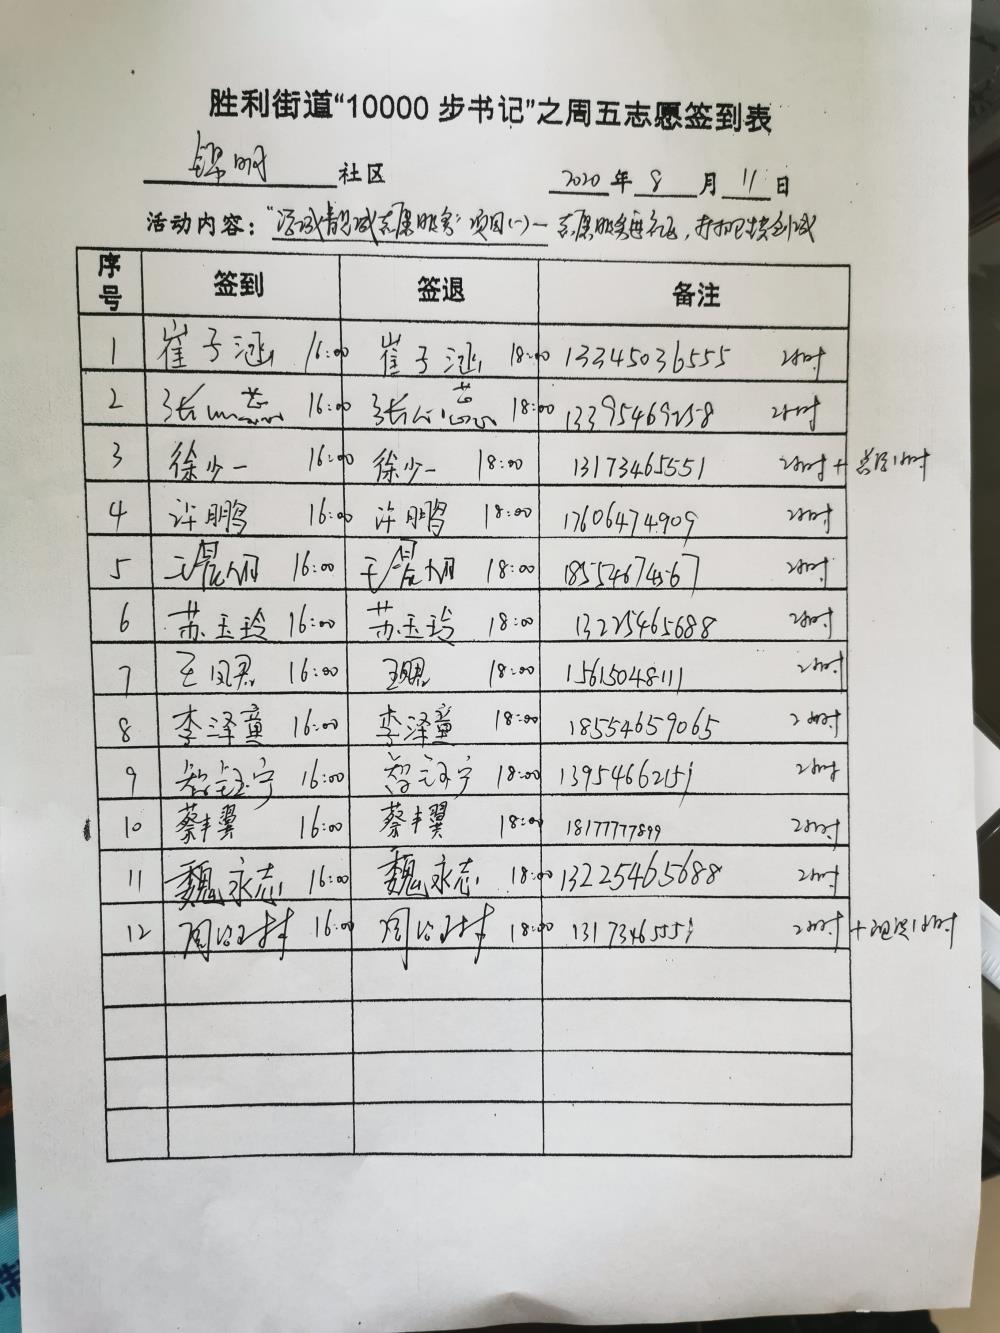 胜利街道“10000步书记”之周五志愿签到表
锦明 社区 2020年8月11日
活动内容：“ 志愿服务”项目(一)—志愿服务
序号 签到 签退 备注
1 崔子涵 16:00 崔子涵 18:00 13345036555 2小时
2 张 16:00 张 18:00 13395469258 2小时
3 徐少一 16:00 徐少一 18:00 13173465551 2小时+ 1小时
4 许鹏 16:00 许鹏 18:00 17606474909 2小时
5 王晨 16:00 王晨 18:00 18554674567 2小时
6 苏玉玲 16:00 苏玉玲 18:00 13225465688 2小时
7 王凤君 16:00 18:00 15615048111 2小时
8 李泽童 16:00 李泽童 18:00 18554659065 2小时
9 智钰宁 16:00 智钰宁 18:00 13954662151 2小时
10 蔡丰翼 16:00 蔡丰翼 18:00 18177777899 2小时
11 魏永志 16:00 魏永志 18:00 13225465688 2小时
12 周 16:00 周 18:00 13173465551 2小时+ 1小时